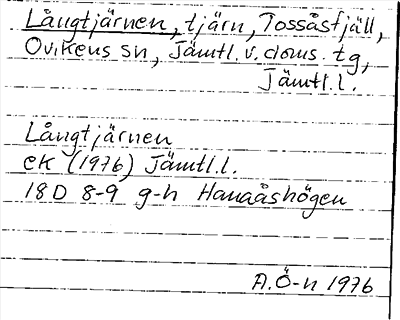 Långtjärnen, tjärn, Tossåsfjäll,
Ovikens sn, Jämtl.v.doms. tg,
Jämtl.l.
Långtjärnen
ek (1976) Jämtl.l.
18D 8-9 g-h Hanaåshögen
A.Ö-n 1976